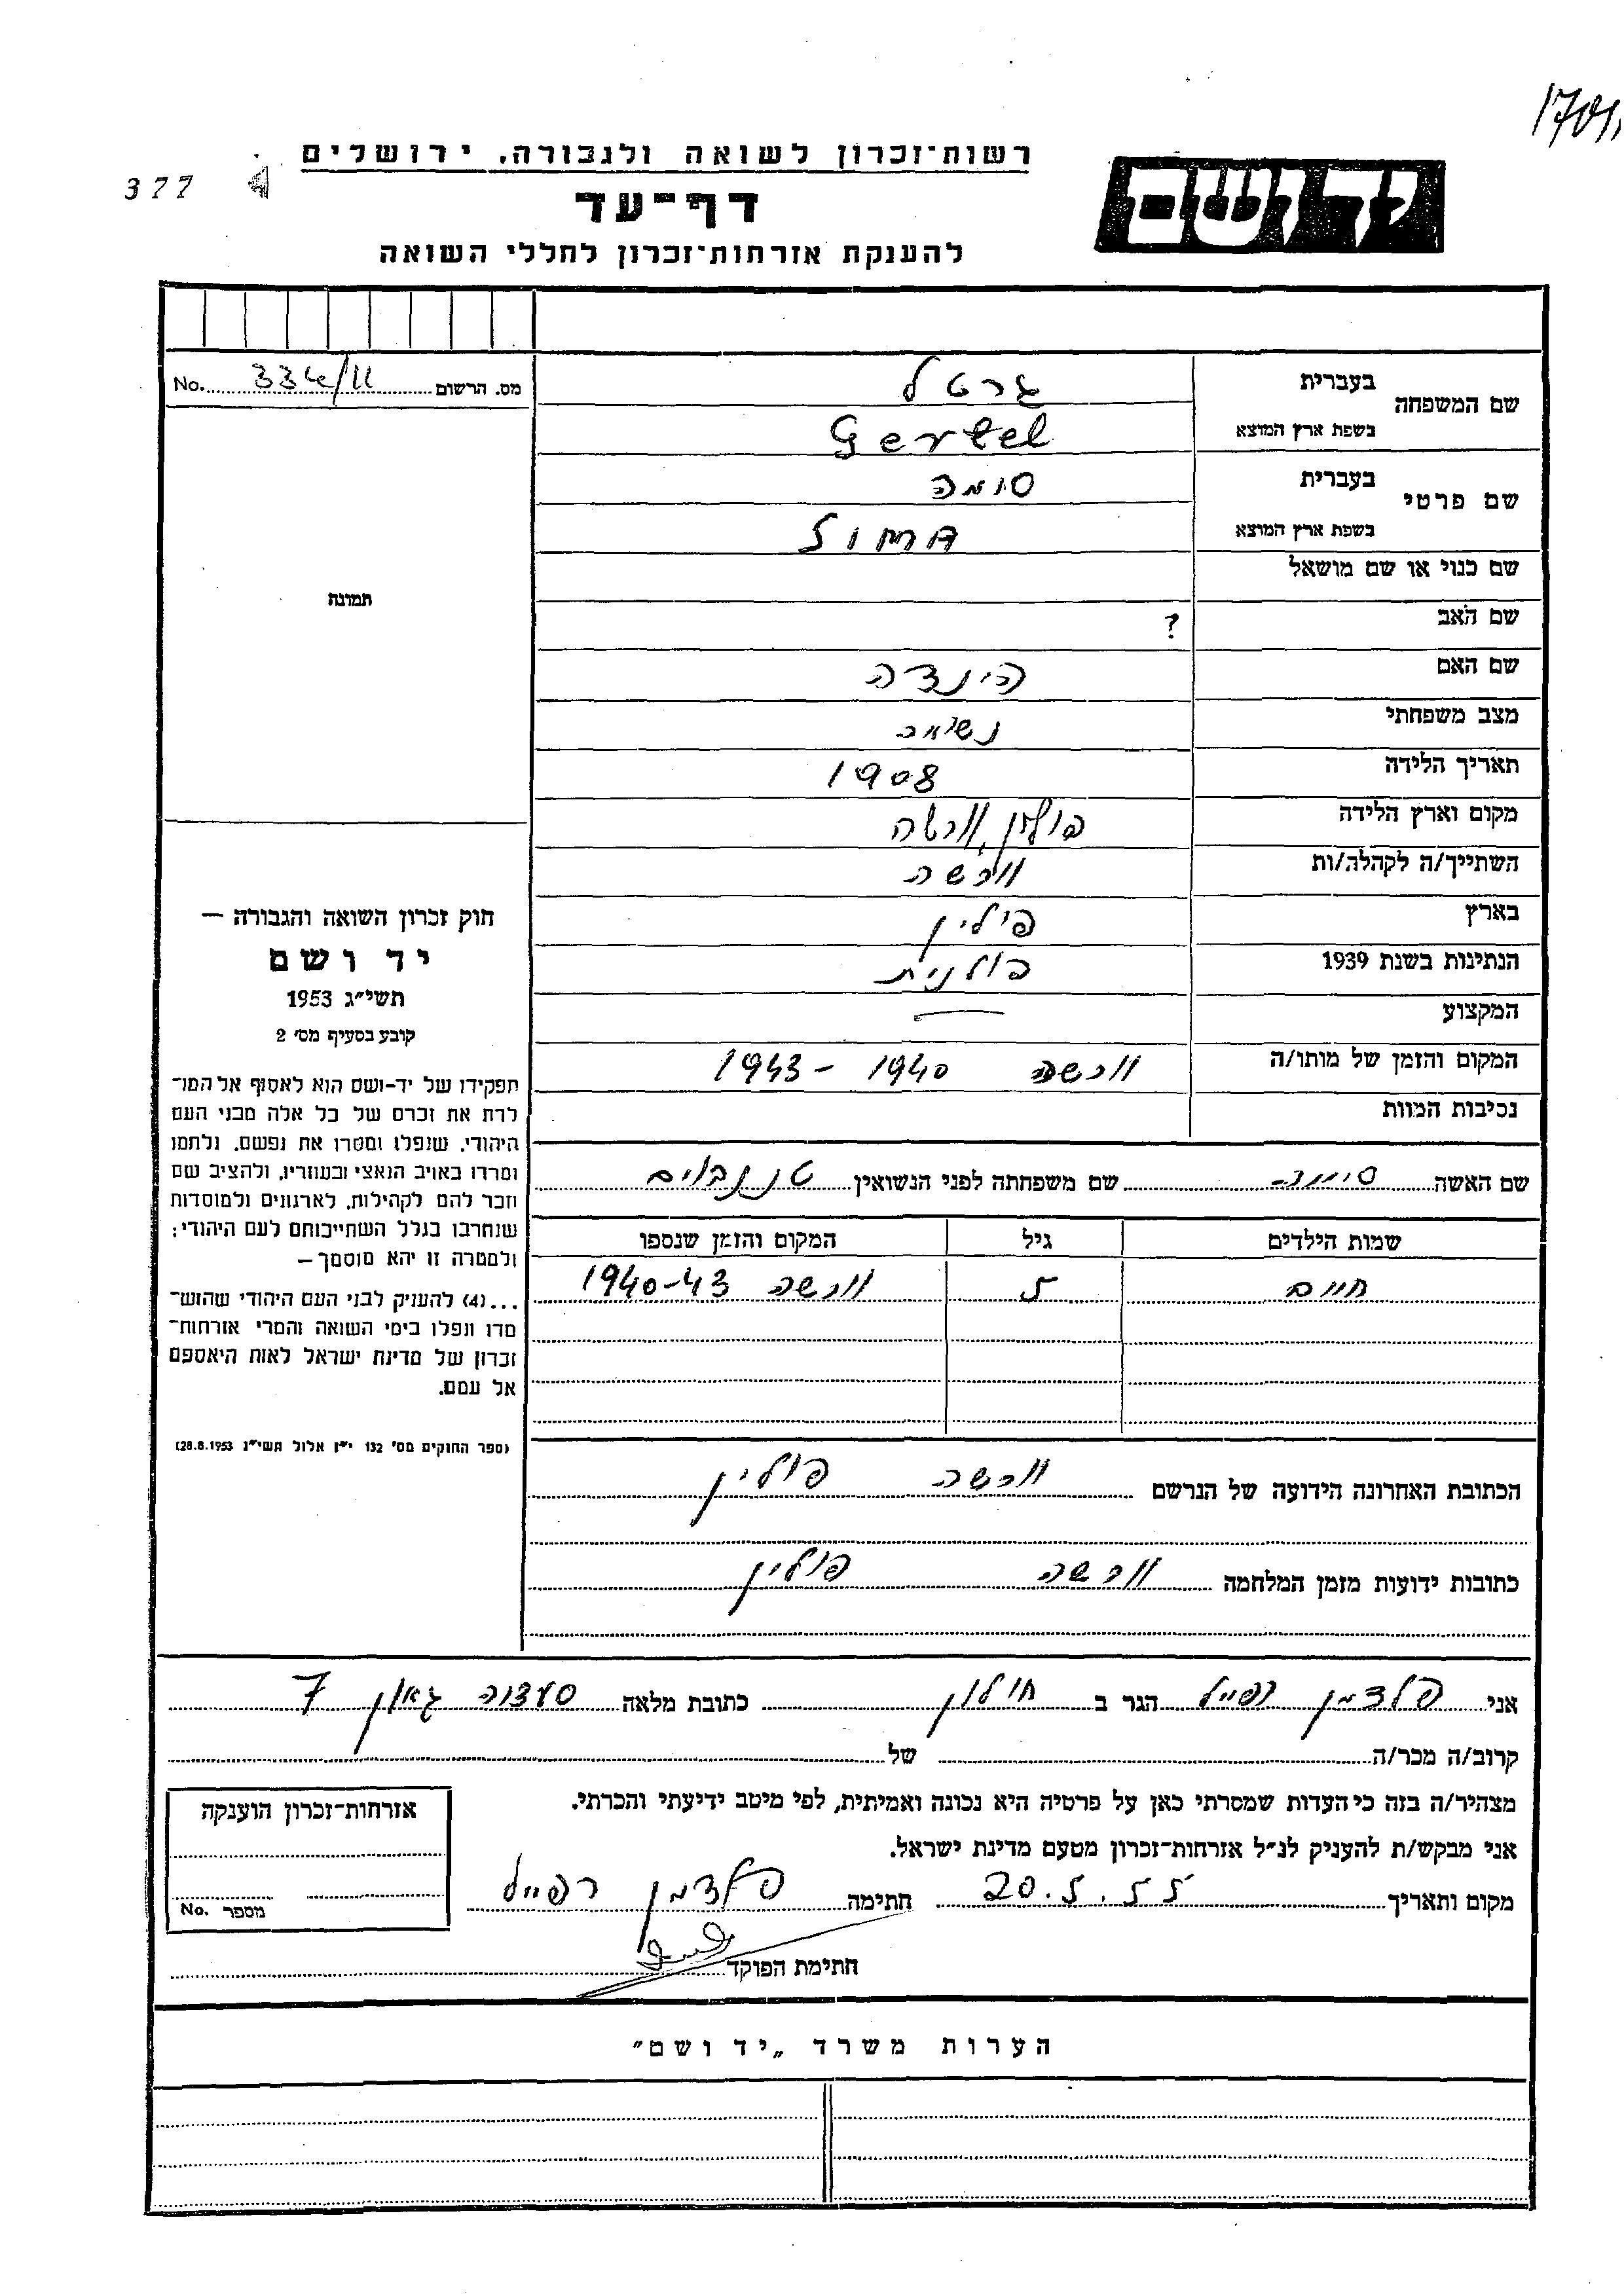 רשות־זכרון לשואה ולגבורה. ירושלים
377
דף־עד
להענקת אזרחות־זכרון לחללי השואה
יד ושם
מס. הרשום 334/11 No.
שם המשפחה
בעברית גרטל
בשפת ארץ המוצא Gertel
שם פרטי
בעברית סומה
בשפת ארץ המוצא
שם כנוי או שם מושאל
שם האב ?
שם האם הינדה
מצב משפחתי נשואה
תאריך הלידה 1908
מקום וארץ הלידה פולין, ורשה
השתייך/ה לקהלה/ות ורשה
בארץ פולין
הנתינות בשנת 1939 פולנית
המקצוע —
המקום והזמן של מותו/ה ורשה 1940 - 1943
נסיבות המוות
תמונה
חוק זכרון השואה והגבורה —
יד ושם
תשי״ג 1953
קובע בסעיף מס׳ 2
תפקידו של יד-ושם הוא לאסוף אל המו־
לדת את זכרם של כל אלה מבני העם
היהודי, שנפלו ומסרו את נפשם, נלחמו
ומרדו באויב הנאצי ובעוזריו, ולהציב שם
וזכר להם לקהילות, לארגונים ולמוסדות
שנחרבו בגלל השתייכותם לעם היהודי;
ולמטרה זו יהא מוסמך —
...(4) להעניק לבני העם היהודי שהוש־
מדו ונפלו בימי השואה והמרי אזרחות־
זכרון של מדינת ישראל לאות היאספם
אל עמם.
(ספר החוקים מס׳ 132 י״ז אלול תשי״ג 28.8.1953)
שם האשה שם משפחתה לפני הנשואין טננבוים
שמות הילדים גיל המקום והזמן שנספו
חיים 5 ורשה 1940-43
הכתובת האחרונה הידועה של הנרשם ורשה פולין
כתובות ידועות מזמן המלחמה ורשה פולין
אני פלדמן רפאל הגר ב חולון כתובת מלאה סעדיה גאון 7
קרוב/ה מכר/ה של
מצהיר/ה בזה כי העדות שמסרתי כאן על פרטיה היא נכונה ואמיתית, לפי מיטב ידיעתי והכרתי.
אני מבקש/ת להעניק לנ״ל אזרחות־זכרון מטעם מדינת ישראל.
מקום ותאריך 20.5.55 חתימה פלדמן רפאל
חתימת הפוקד
אזרחות־זכרון הוענקה
מספר No.
הערות משרד „יד ושם״